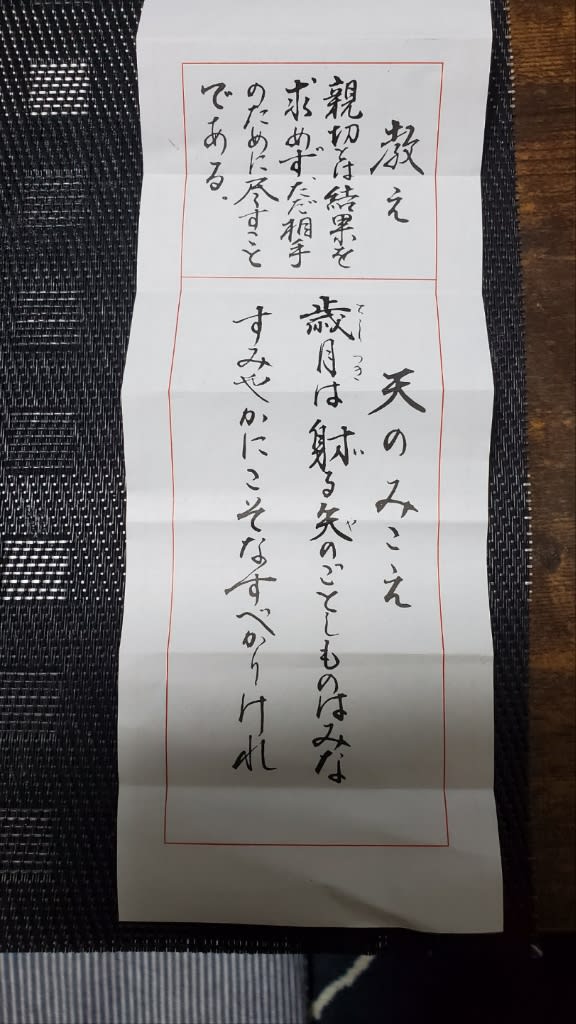 教え
親切とは結果を
求めず、ただ相手
のために尽すこと
である。
天のみこえ
歳月は射る矢のごとしものはみな
としつき
や
すみやかにこそなすべかりけれ